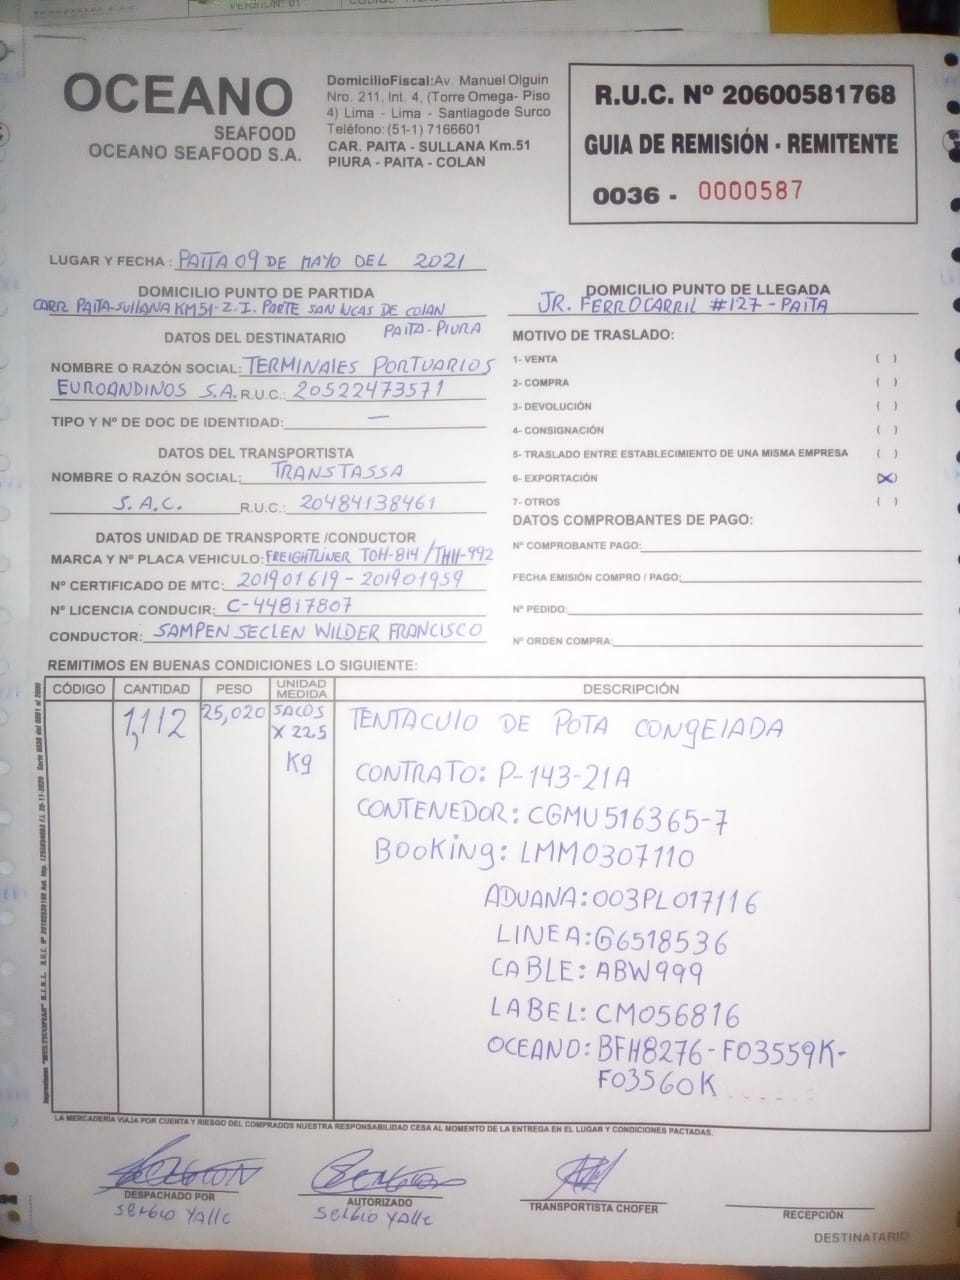 VERSION: 01
OCEANO
SEAFOOD
OCEANO SEAFOOD S.A.
DomicilioFiscal:Av. Manuel Olguin
Nro. 211, Int. 4, (Torre Omega- Piso
4) Lima - Lima - Santiagode Surco
Teléfono: (51-1) 7166601
CAR. PAITA - SULLANA Km.51
PIURA - PAITA - COLAN
R.U.C. Nº 20600581768
GUIA DE REMISIÓN - REMITENTE
0036 - 0000587
LUGAR Y FECHA : PAITA 09 DE MAYO DEL 2021
DOMICILIO PUNTO DE PARTIDA
CARR PAITA-SULLANA KM51-Z.I. PARTE SAN LUCAS DE COLAN
PAITA-PIURA
DOMICILIO PUNTO DE LLEGADA
JR. FERROCARRIL #127-PAITA
DATOS DEL DESTINATARIO
NOMBRE O RAZÓN SOCIAL: TERMINALES PORTUARIOS
EUROANDINOS S.A. R.U.C.: 20522473571
TIPO Y Nº DE DOC DE IDENTIDAD: —
DATOS DEL TRANSPORTISTA
NOMBRE O RAZÓN SOCIAL: TRANSTASSA
S.A.C. R.U.C.: 20484138461
DATOS UNIDAD DE TRANSPORTE /CONDUCTOR
MARCA Y Nº PLACA VEHICULO: FREIGHTLINER TOH-814 / THH-992
Nº CERTIFICADO DE MTC: 201901619-201901959
Nº LICENCIA CONDUCIR: C-44817807
CONDUCTOR: SAMPEN SECLEN WILDER FRANCISCO
MOTIVO DE TRASLADO:
1- VENTA ( )
2- COMPRA ( )
3- DEVOLUCIÓN ( )
4- CONSIGNACIÓN ( )
5- TRASLADO ENTRE ESTABLECIMIENTO DE UNA MISMA EMPRESA ( )
6- EXPORTACIÓN (X)
7- OTROS ( )
DATOS COMPROBANTES DE PAGO:
Nº COMPROBANTE PAGO:
FECHA EMISIÓN COMPRO / PAGO:
Nº PEDIDO:
Nº ORDEN COMPRA:
REMITIMOS EN BUENAS CONDICIONES LO SIGUIENTE:
CÓDIGO CANTIDAD PESO UNIDAD MEDIDA DESCRIPCIÓN
1,112 25,020 SACOS X 22.5 Kg TENTACULO DE POTA CONGELADA
CONTRATO: P-143-21A
CONTENEDOR: CGMU516365-7
BOOKING: LMM0307110
ADUANA: 003PL017116
LINEA: G6518536
CABLE: ABW999
LABEL: CM056816
OCEANO: BFH8276-F03559K-
F03560K
LA MERCADERÍA VIAJA POR CUENTA Y RIESGO DEL COMPRADOS NUESTRA RESPONSABILIDAD CESA AL MOMENTO DE LA ENTREGA EN EL LUGAR Y CONDICIONES PACTADAS.
DESPACHADO POR
Sergio Yalle
AUTORIZADO
Sergio Yalle
TRANSPORTISTA CHOFER
RECEPCIÓN
DESTINATARIO